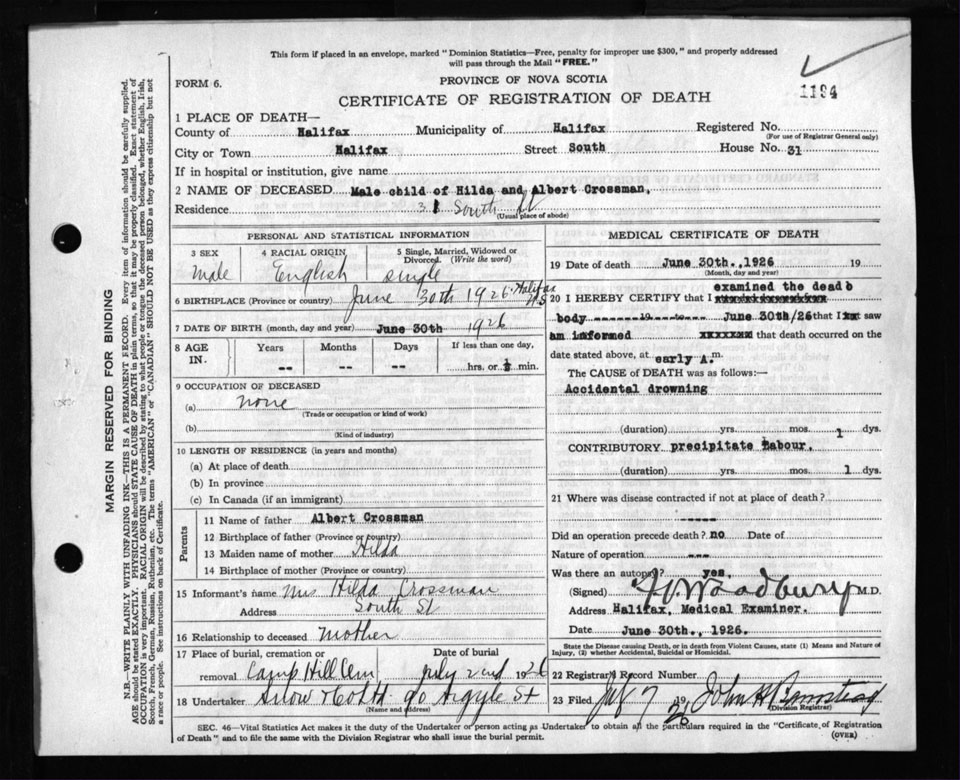 This form if placed in an envelope, marked "Dominion Statistics—Free, penalty for improper use $300," and properly addressed
will pass through the Mail "FREE."
FORM 6.
PROVINCE OF NOVA SCOTIA
1194
CERTIFICATE OF REGISTRATION OF DEATH
1 PLACE OF DEATH—
County of Halifax Municipality of Halifax Registered No.
(For use of Registrar General only)
City or Town Halifax Street South House No. 31
If in hospital or institution, give name
2 NAME OF DECEASED Male child of Hilda and Albert Crossman,
Residence 31 South St
(Usual place of abode)
PERSONAL AND STATISTICAL INFORMATION
3 SEX 4 RACIAL ORIGIN 5 Single, Married, Widowed or Divorced. (Write the word)
Male English single
6 BIRTHPLACE (Province or country) June 30th 1926 Halifax N.S
7 DATE OF BIRTH (month, day and year) June 30th 1926
8 AGE IN. Years Months Days If less than one day,
-- -- -- hrs. or ½ min.
9 OCCUPATION OF DECEASED
(a) none
(Trade or occupation or kind of work)
(b)
(Kind of industry)
10 LENGTH OF RESIDENCE (in years and months)
(a) At place of death
(b) In province
(c) In Canada (if an immigrant)
Parents
11 Name of father Albert Crossman
12 Birthplace of father (Province or country)
13 Maiden name of mother Hilda
14 Birthplace of mother (Province or country)
15 Informant's name Mrs Hilda Crossman
Address South St
16 Relationship to deceased mother
17 Place of burial, cremation or Date of burial
removal Camp Hill Cem July 2nd 1926
18 Undertaker Snow & Co Ltd 90 Argyle St
(Name and address)
MEDICAL CERTIFICATE OF DEATH
19 Date of death June 30th., 1926 19
(Month, day and year)
examined the dead b
20 I HEREBY CERTIFY that I xxxxxxxxxxxxxxxxx
body ------- 19 -- to -- June 30th/26 that I xx saw
an informed xxxxxxx that death occurred on
date stated above, at early A.m.
The CAUSE of DEATH was as follows:—
Accidental drowning
(duration) yrs. mos. 1 dys.
CONTRIBUTORY precipitate labour.
(duration) yrs. mos. 1 dys.
21 Where was disease contracted if not at place of death?
-----
Did an operation precede death? no Date of
Nature of operation ---
Was there an autopsy? yes.
(Signed) M.D.
Address Halifax, Medical Examiner.
Date June 30th., 1926.
State the Disease causing Death, or in death from Violent Causes, state (1) Means and Nature of
Injury, (2) whether Accidental, Suicidal or Homicidal.
22 Registrar's Record Number
23 Filed July 7 1926 John
(Division Registrar)
SEC. 46—Vital Statistics Act makes it the duty of the Undertaker or person acting as Undertaker to obtain all the particulars required in the "Certificate of Registration
of Death" and to file the same with the Division Registrar who shall issue the burial permit.
(OVER)
MARGIN RESERVED FOR BINDING
N.B.—WRITE PLAINLY WITH UNFADING INK—THIS IS A PERMANENT RECORD. Every item of information should be carefully supplied.
AGE should be stated EXACTLY. PHYSICIANS should STATE CAUSE OF DEATH in plain terms, so that it may be properly classified. Exact statement of
OCCUPATION is very important. RACIAL ORIGIN will be described by stating to what people or tongue the deceased person belonged, whether English, Irish,
Scotch, French, German, Russian, Ruthenian, etc. The terms "AMERICAN" or "CANADIAN" SHOULD NOT BE USED as they express citizenship but not
a race or people. See instructions on back of Certificate.